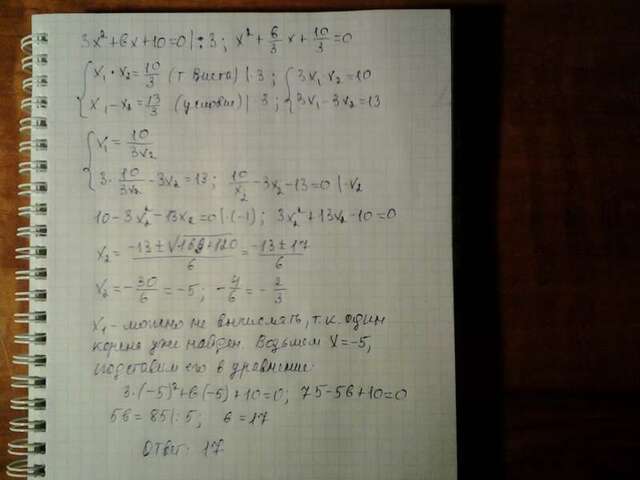 3x²+6x+10=0 |:3; x²+6/3x+10/3=0
{x₁·x₂=10/3 (т. Виета) |·3; {3x₁·x₂=10
x₁-x₂=13/3 (условие) |·3; 3x₁-3x₂=13
{x₁=10/3x₂
3·10/3x₂-3x₂=13; 10/x₂-3x₂-13=0 |·x₂
10-3x₂²-13x₂=0 |·(-1); 3x₂²+13x₂-10=0
x₂=(-13±√169+120)/6=(-13±17)/6
x₂=-30/6=-5; -4/6=-2/3
x₁-можно не вычислять, т.к. один
корень уже найден. Возьмем x=-5,
подставим его в уравнение:
3·(-5)²+б(-5)+10=0; 75-5б+10=0
5б=85|:5; б=17
Ответ: 17